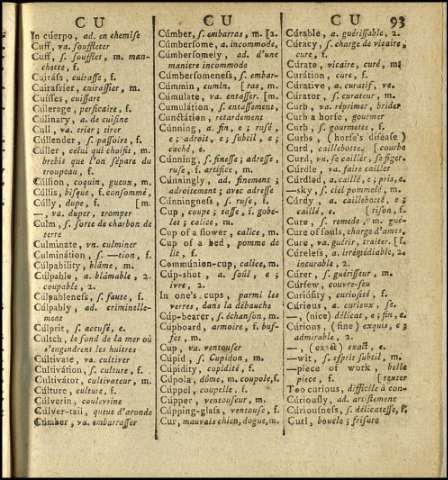 C U
C U
C U
93
In cuerpo, ad. en chemise
Cuff, va. souffleter
Cuff, s. soufflet, m. man-
chette, f.
Cuiráss, cuirasse, f.
Cuirassier, cuirassier, m.
Cuisses, cuissart
Cúllerage, persicaire, f.
Cúlinary, a. de cuisine
Cull, va. trier; tirer
Cúllender, s. passoire, f.
Cúller, celui qui choisit, m.
brebis que l'on sépare du
troupeau, f.
Cúllion, coquin, gueux, m.
Cúllis, bisque, f. consommé,
Cúlly, dupe, f. [m.
—, va. duper, tromper
Culm, s. sorte de charbon de
terre
Cúlminate, vn. culminer
Culminátion, s. —tion, f.
Culpability, blâme, m.
Cúlpable, a. blâmable, 2.
coupable, 2.
Cúlpableness, s. faute, f.
Cúlpably, ad. criminelle-
ment
Cúlprit, s. accusé, e.
Cultch, le fond de la mer où
s'engendrent les huitres
Cúltivate, va. cultiver
Cultivátion, s. culture, f.
Cultivátor, cultivateur, m.
Cúlture, culture, f.
Cúlverin, couleuvrine
Cúlver-tail, queue d'aronde
Cúmber, va. embarrasser
Cúmber, s. embarras, m. [2.
Cúmbersome, a. incommode,
Cúmbersomely, ad. d'une
maniere incommode
Cúmbersomeness, s. embar-
Cúmmin, cumin, [ras, m.
Cúmulate, va. entasser. [m.
Cumulátion, s. entassement,
Cunctátion, retardement
Cúnning, a. fin, e; rusé,
e; adroit, e; subtil, e;
caché, e.
Cúnning, s. finesse; adresse;
ruse, f. artifice, m.
Cúnningly, ad. finement;
adroitement; avec adresse
Cúnningness, s. ruse, f.
Cup, coupe; tasse, f. gobe-
let; calice, m.
Cup of a flower, calice, m.
Cup of a bed, pomme de
lit, f.
Communion-cup, calice, m.
Cúp-shot, a. soûl, e;
ivre, 2.
In one's cups, parmi les
verres, dans la débauche
Cúp-bearer, s. échanson, m.
Cúpboard, armoire, f. buf-
fet, m.
Cup, va. ventouser
Cúpid, s. Cupidon, m.
Cupídity, cupidité, f.
Cúpola, dôme, m. coupole, f.
Cúppel, coupelle, f.
Cúpper, ventouseur, m.
Cúpping-glass, ventouse, f.
Cur, mauvais chien, dogue, m.
Cúrable, a. guérissable, 2.
Cúracy, s. charge de vicaire,
cure, f.
Cúrate, vicaire, curé, m.
Curátion, cure, f.
Cúrative, a. curatif, ve.
Curátor, s. curateur, m.
Curb, va. réprimer, brider
Curb a horse, gourmer
Curb, s. gourmette, f.
Curbs, (horse's disease)
Curd, caillebotte, [courbe
Curd, va. se cailler, se figer.
Cúrdle, va. faire cailler
Cúrdled, a. caillé, e; pris, e.
—sky, s. ciel pommelé, m.
Cúrdy, a. caillebotté, e;
caillé, e. [rison, f.
Cure, s. remede, m. gué-
Cure of souls, charge d'ames,
Cure, va. guérir, traiter. [f.
Cúreless, a. irrémédiable, 2.
incurable, 2.
Cúrer, s. guérisseur, m.
Cúrfew, couvre-feu
Curiósity, curiosité, f.
Cúrious, a. curieux, se.
—, (nice) délicat, e; fin, e.
Cúrious, (fine) exquis, e;
admirable, 2.
—, (exact) exact, e.
—wit, s. esprit subtil, m.
—piece of work, belle
piece, f.
Too curious, difficile à con-
Cúriously, ad. artistement
Cúriousness, s. délicatesse, f.
Curl, boucle; frisure